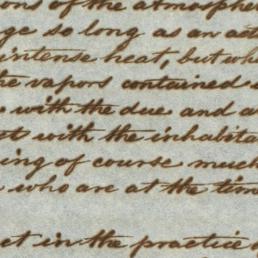 ons of the atmosphe
ge so long as an act
intense heat, but wh
he vapors contained
with the due and a
t with the inhabita
ing of course much
who are at the time
et in the practice